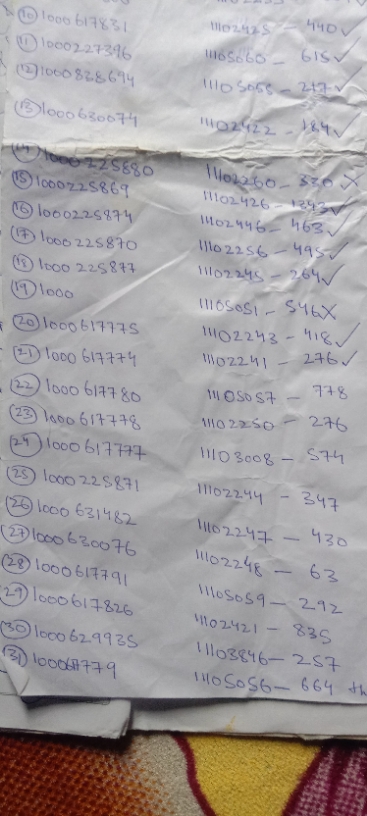 (10) 1000617831 11102425 - 440 ✓
(11) 1000227396 11105060 - 615 ✓
(12) 1000838694 11105058 - 217 ✓
(13) 1000630074 11102422 - 184 ✓
(14) 1000225880 11102260 - 330 X
(15) 1000225869 11102426 - 1343 ✓
(16) 1000225874 11102446 - 463 ✓
(17) 1000225870 11102256 - 495 ✓
(18) 1000225877 11102245 - 264 ✓
(19) 1000 11105051 - 546 X
(20) 1000617775 11102243 - 418 ✓
(21) 1000617774 11102241 - 276 ✓
(22) 1000617780 11105057 - 778
(23) 1000617778 11102250 - 276
(24) 1000617777 11103008 - 574
(25) 1000225871 11102244 - 347
(26) 1000631482 11102247 - 430
(27) 1000630076 11102248 - 63
(28) 1000617791 11105059 - 292
(29) 1000617826 11102421 - 835
(30) 1000629935 11103846 - 257
(31) 100067779 11105056 - 664